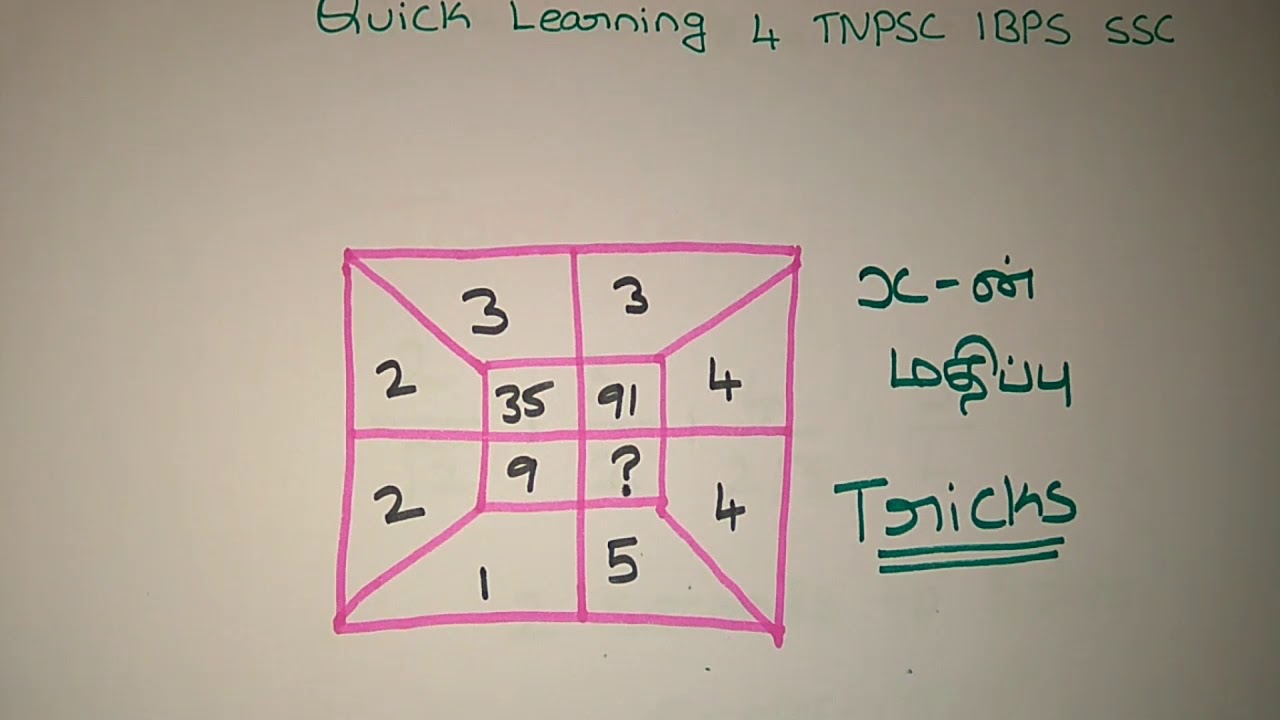 Quick Learning 4 TNPSC IBPS SSC
3 3
2 35 91 4
2 9 ? 4
1 5
x-ன்
மதிப்பு
Tricks